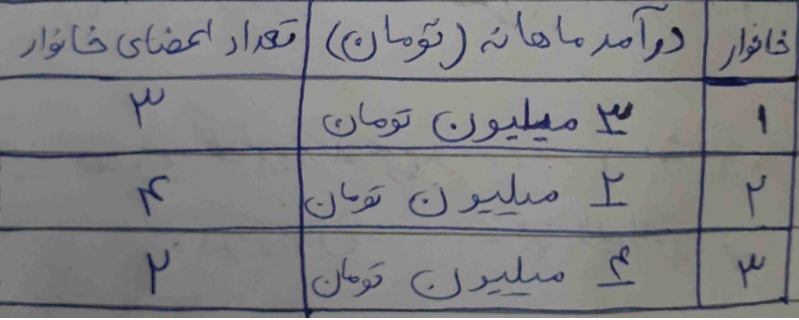 خانوار درآمد ماهانه (تومان) تعداد اعضای خانوار
۱ ۳ میلیون تومان ۳
۲ ۲ میلیون تومان ۴
۳ ۴ میلیون تومان ۲